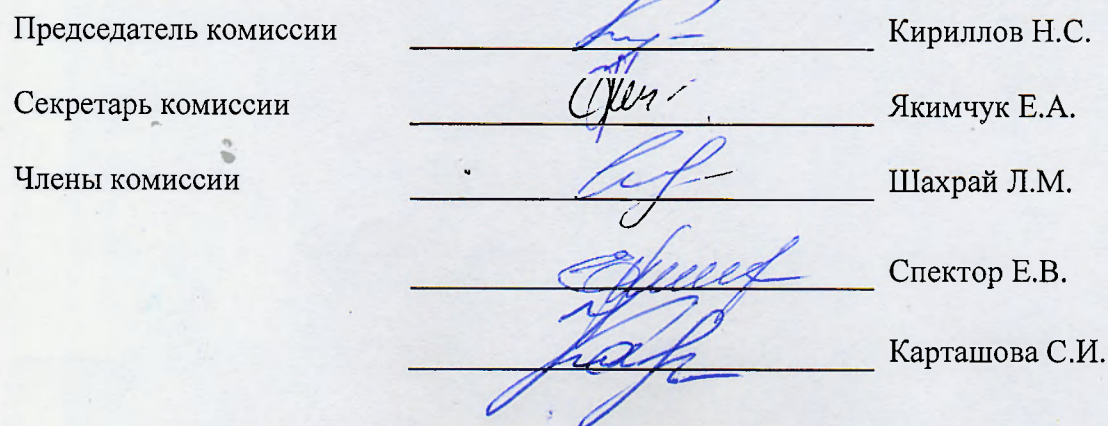 Председатель комиссии Кириллов Н.С.
Секретарь комиссии Якимчук Е.А.
Члены комиссии Шахрай Л.М.
Спектор Е.В.
Карташова С.И.